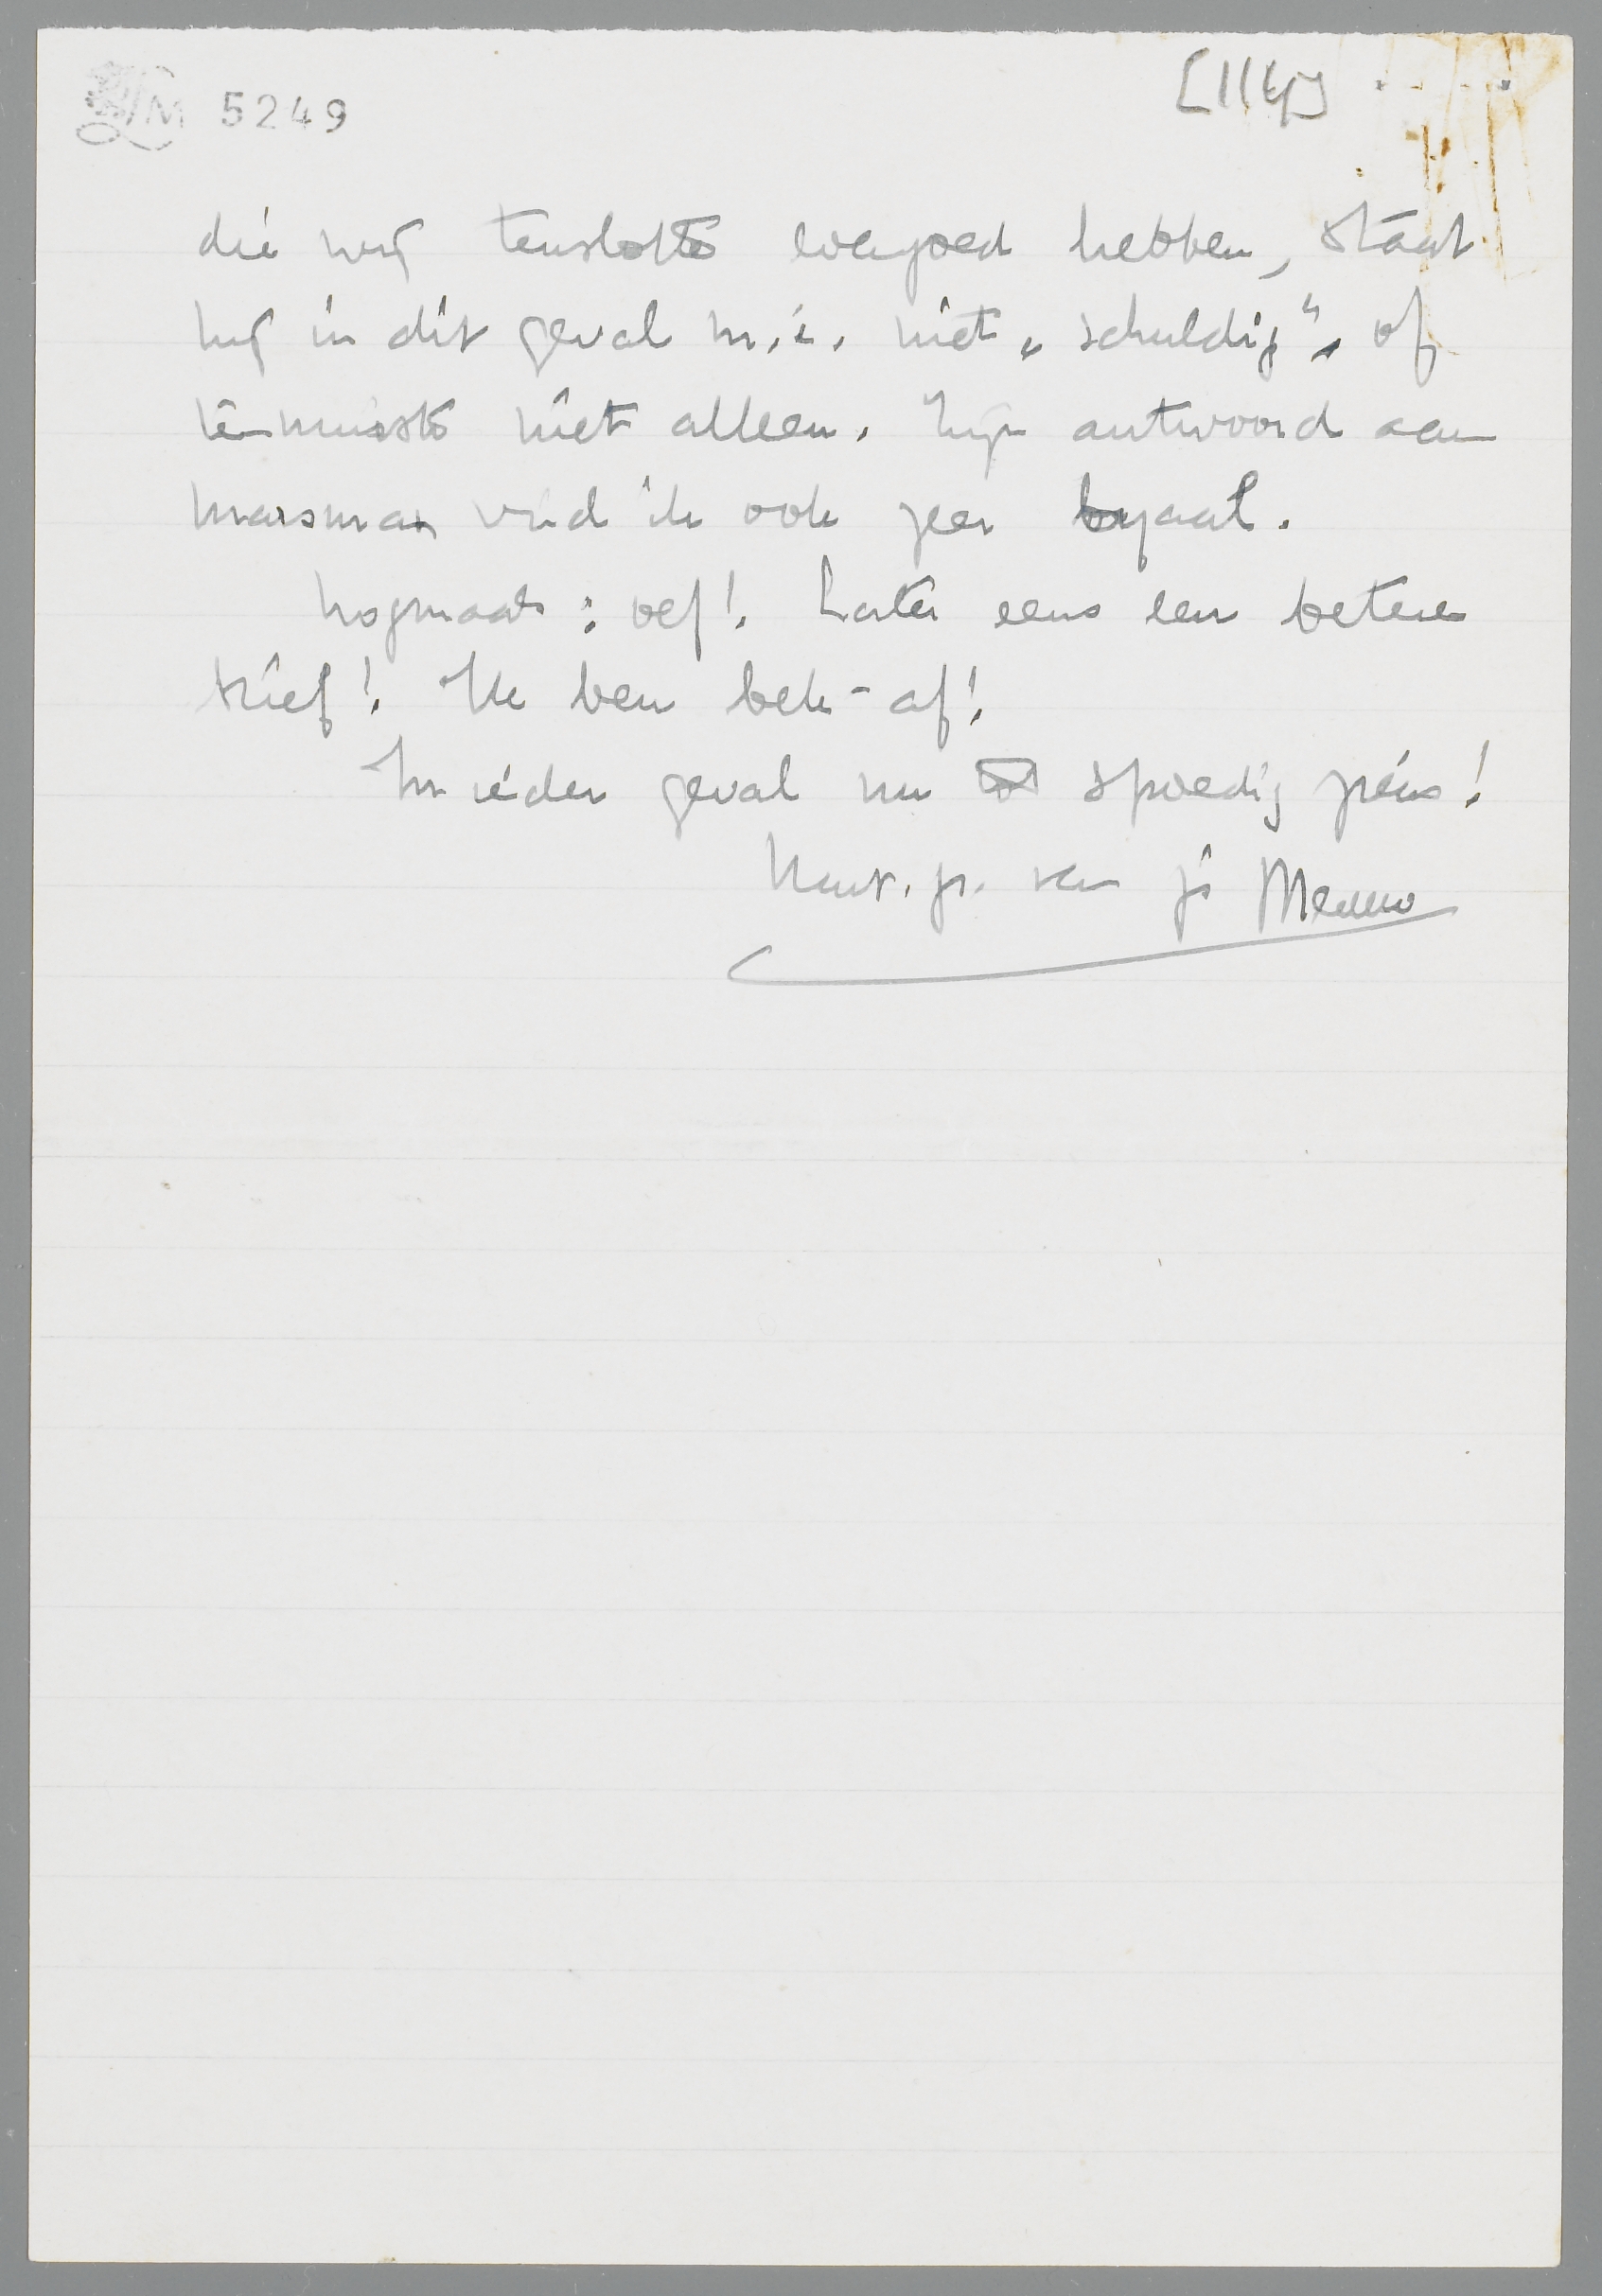 LM 5249
[114]
die wij tenslotte evengoed hebben, staat
hij in dit geval m.i. niet „schuldig”, of
tenminste niet alleen. Zijn antwoord aan
Marsman vind ik ook zeer loyaal.
Nogmaals: oef! Later eens een betere
brief! Ik ben bek-af!
In ieder geval nu spoedig præs!
Hart. gr. van je Menno